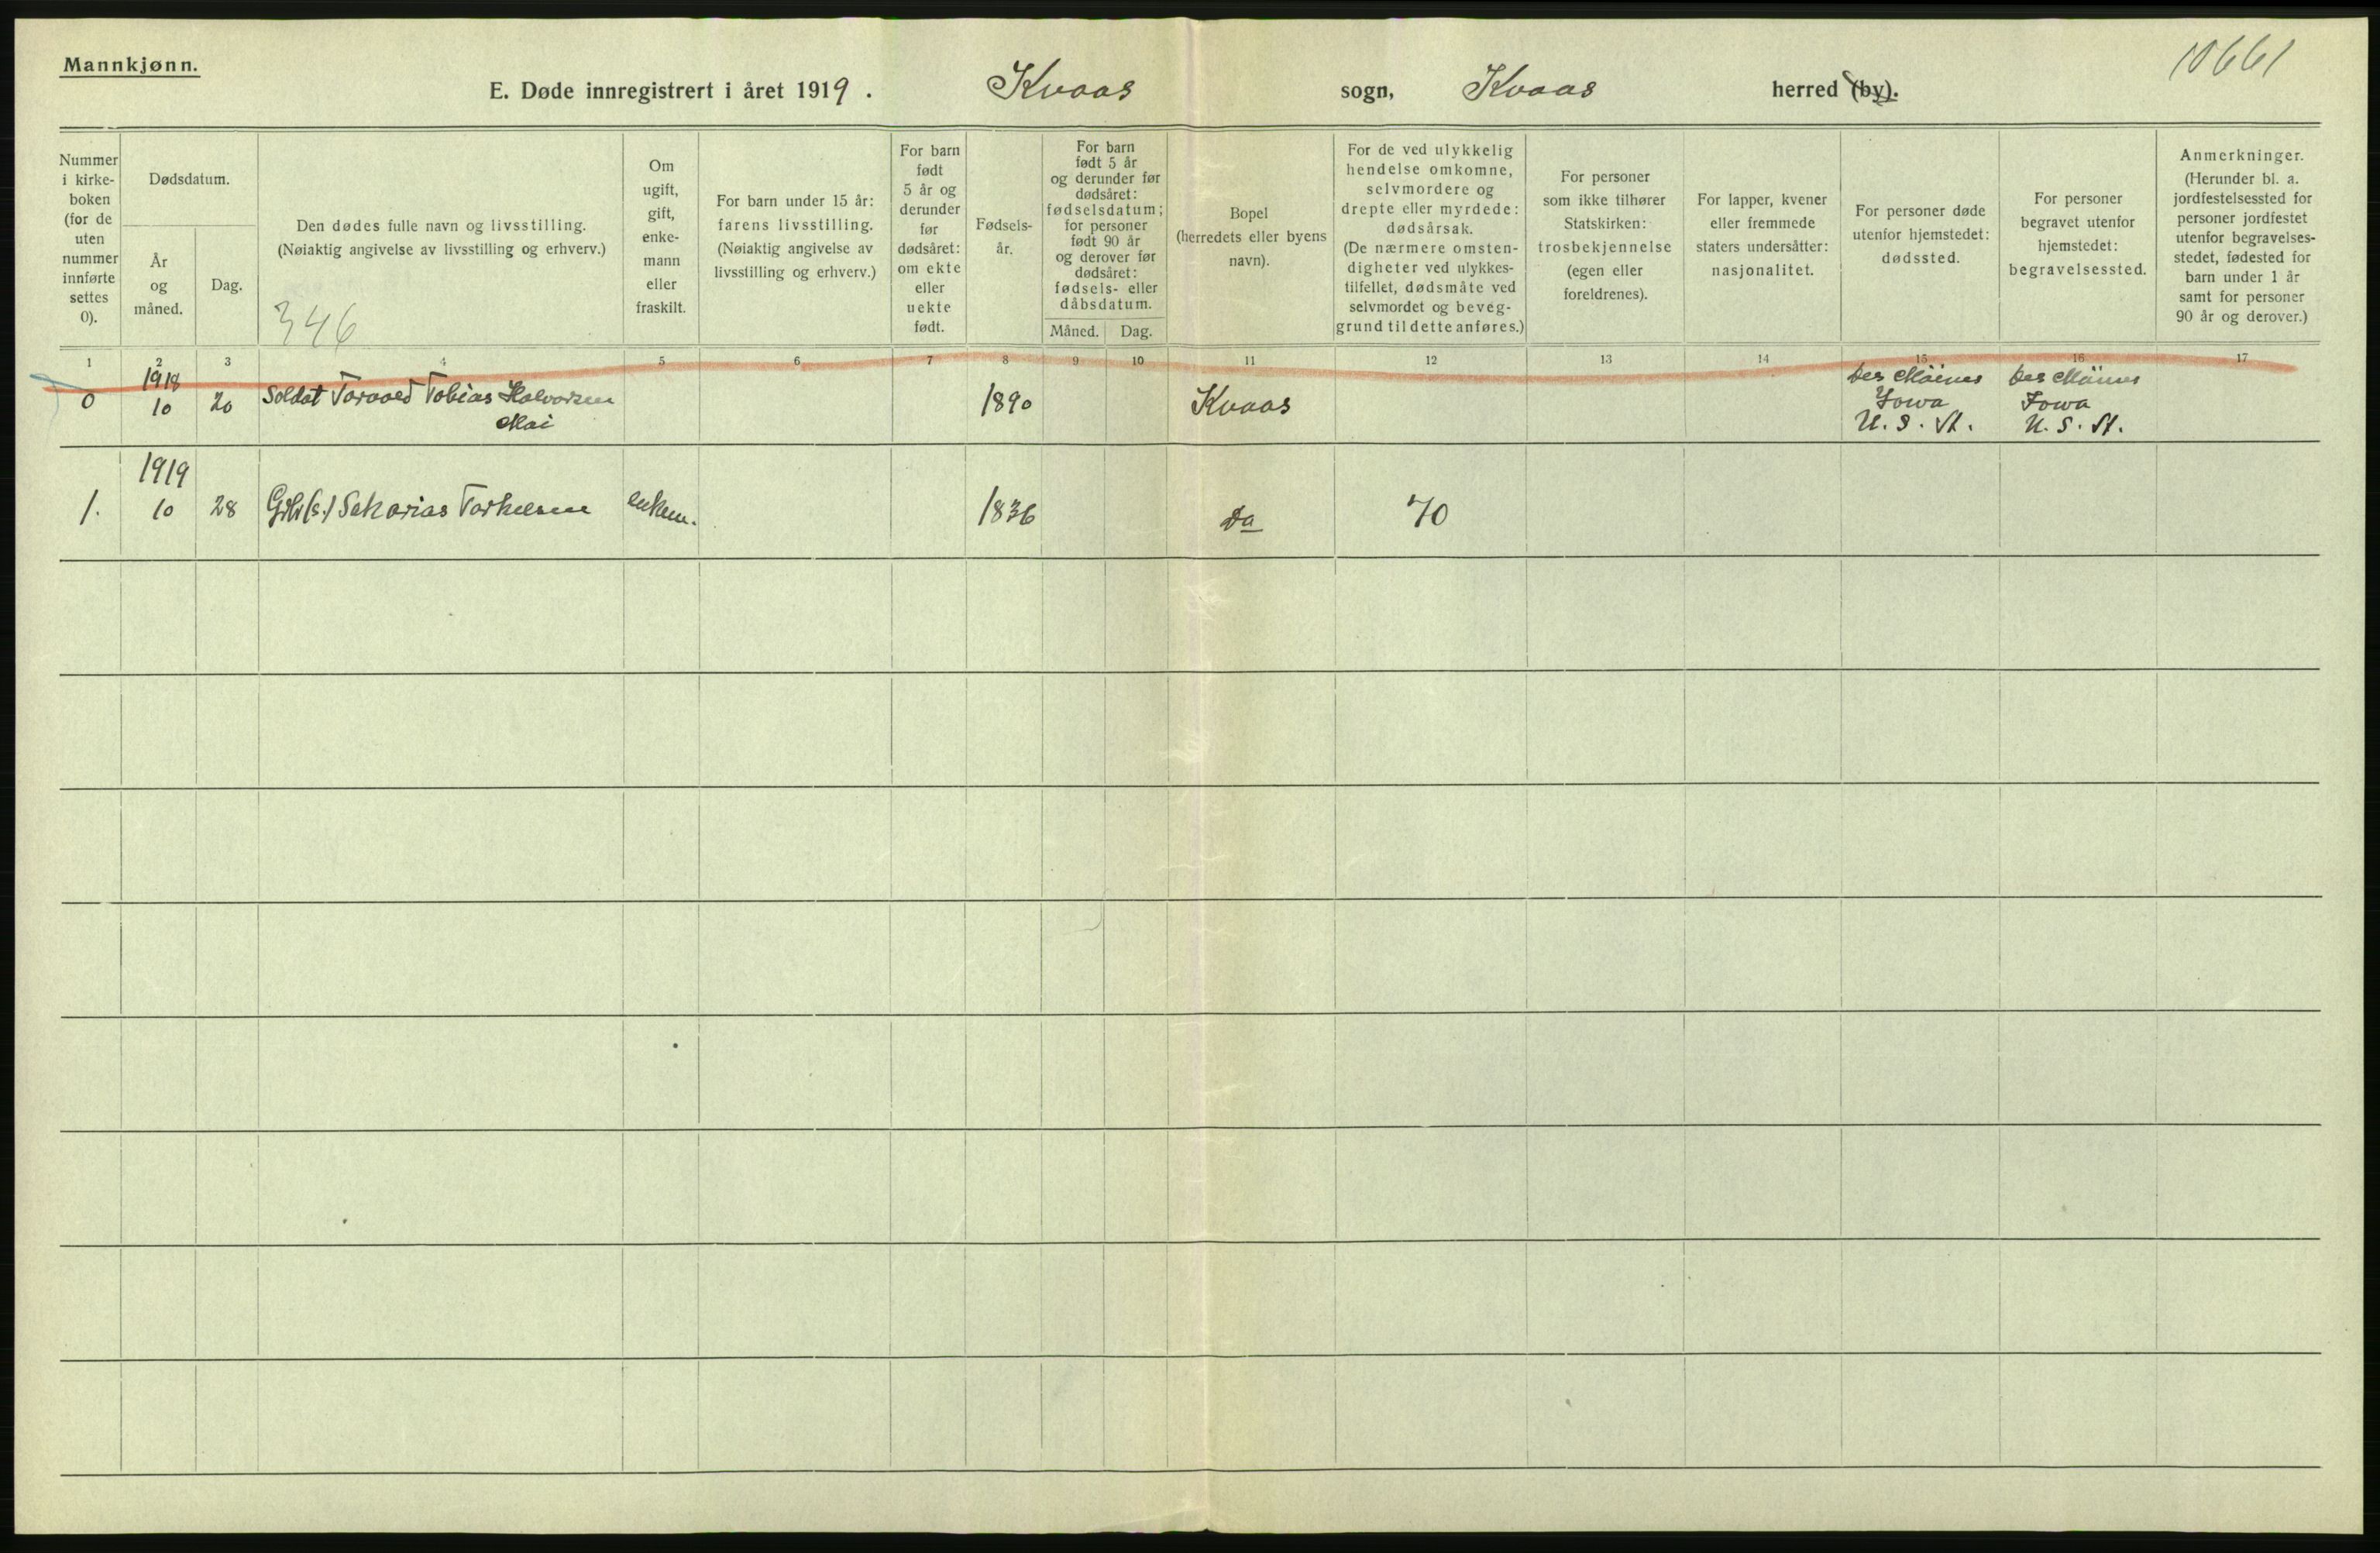 Mannkjønn.
10661
E. Døde innregistrert i året 1919. Kvaas sogn, Kvaas herred (by).
Nummer
i kirke-
boken
(for de
uten
nummer
innførte
settes
0).
Dødsdatum.
År
og
måned.
Dag.
Den dødes fulle navn og livsstilling.
(Nøiaktig angivelse av livsstilling og erhverv.)
346
Om
ugift,
gift,
enke-
mann
eller
fraskilt.
For barn under 15 år:
farens livsstilling.
(Nøiaktig angivelse av
livsstilling og erhverv.)
For barn
født
5 år og
derunder
før
dødsåret:
om ekte
eller
uekte
født.
Fødsels-
år.
For barn
født 5 år
og derunder før
dødsåret:
fødselsdatum;
for personer
født 90 år
og derover før
dødsåret:
fødsels- eller
dåbsdatum.
Måned. Dag.
Bopel
(herredets eller byens
navn).
For de ved ulykkelig
hendelse omkomne,
selvmordere og
drepte eller myrdede:
dødsårsak.
(De nærmere omsten-
digheter ved ulykkes-
tilfellet, dødsmåte ved
selvmordet og beveg-
grund til dette anføres.)
For personer
som ikke tilhører
Statskirken:
trosbekjennelse
(egen eller
foreldrenes).
For lapper, kvener
eller fremmede
staters undersåtter:
nasjonalitet.
For personer døde
utenfor hjemstedet:
dødssted.
For personer
begravet utenfor
hjemstedet:
begravelsessted.
Anmerkninger.
(Herunder bl. a.
jordfestelsessted for
personer jordfestet
utenfor begravelses-
stedet, fødested for
barn under 1 år
samt for personer
90 år og derover.)
1 2 3 4 5 6 7 8 9 10 11 12 13 14 15 16 17
1918 Des Moines Des Moines
0 10 20 Soldat Torvald Tobias Halvorsen 1890 Kvaas Iowa Iowa
Moi U. S. A. U. S. A.
1919
1. 10 28 Sakarias Torkelsen enkem. 1836 Do 70